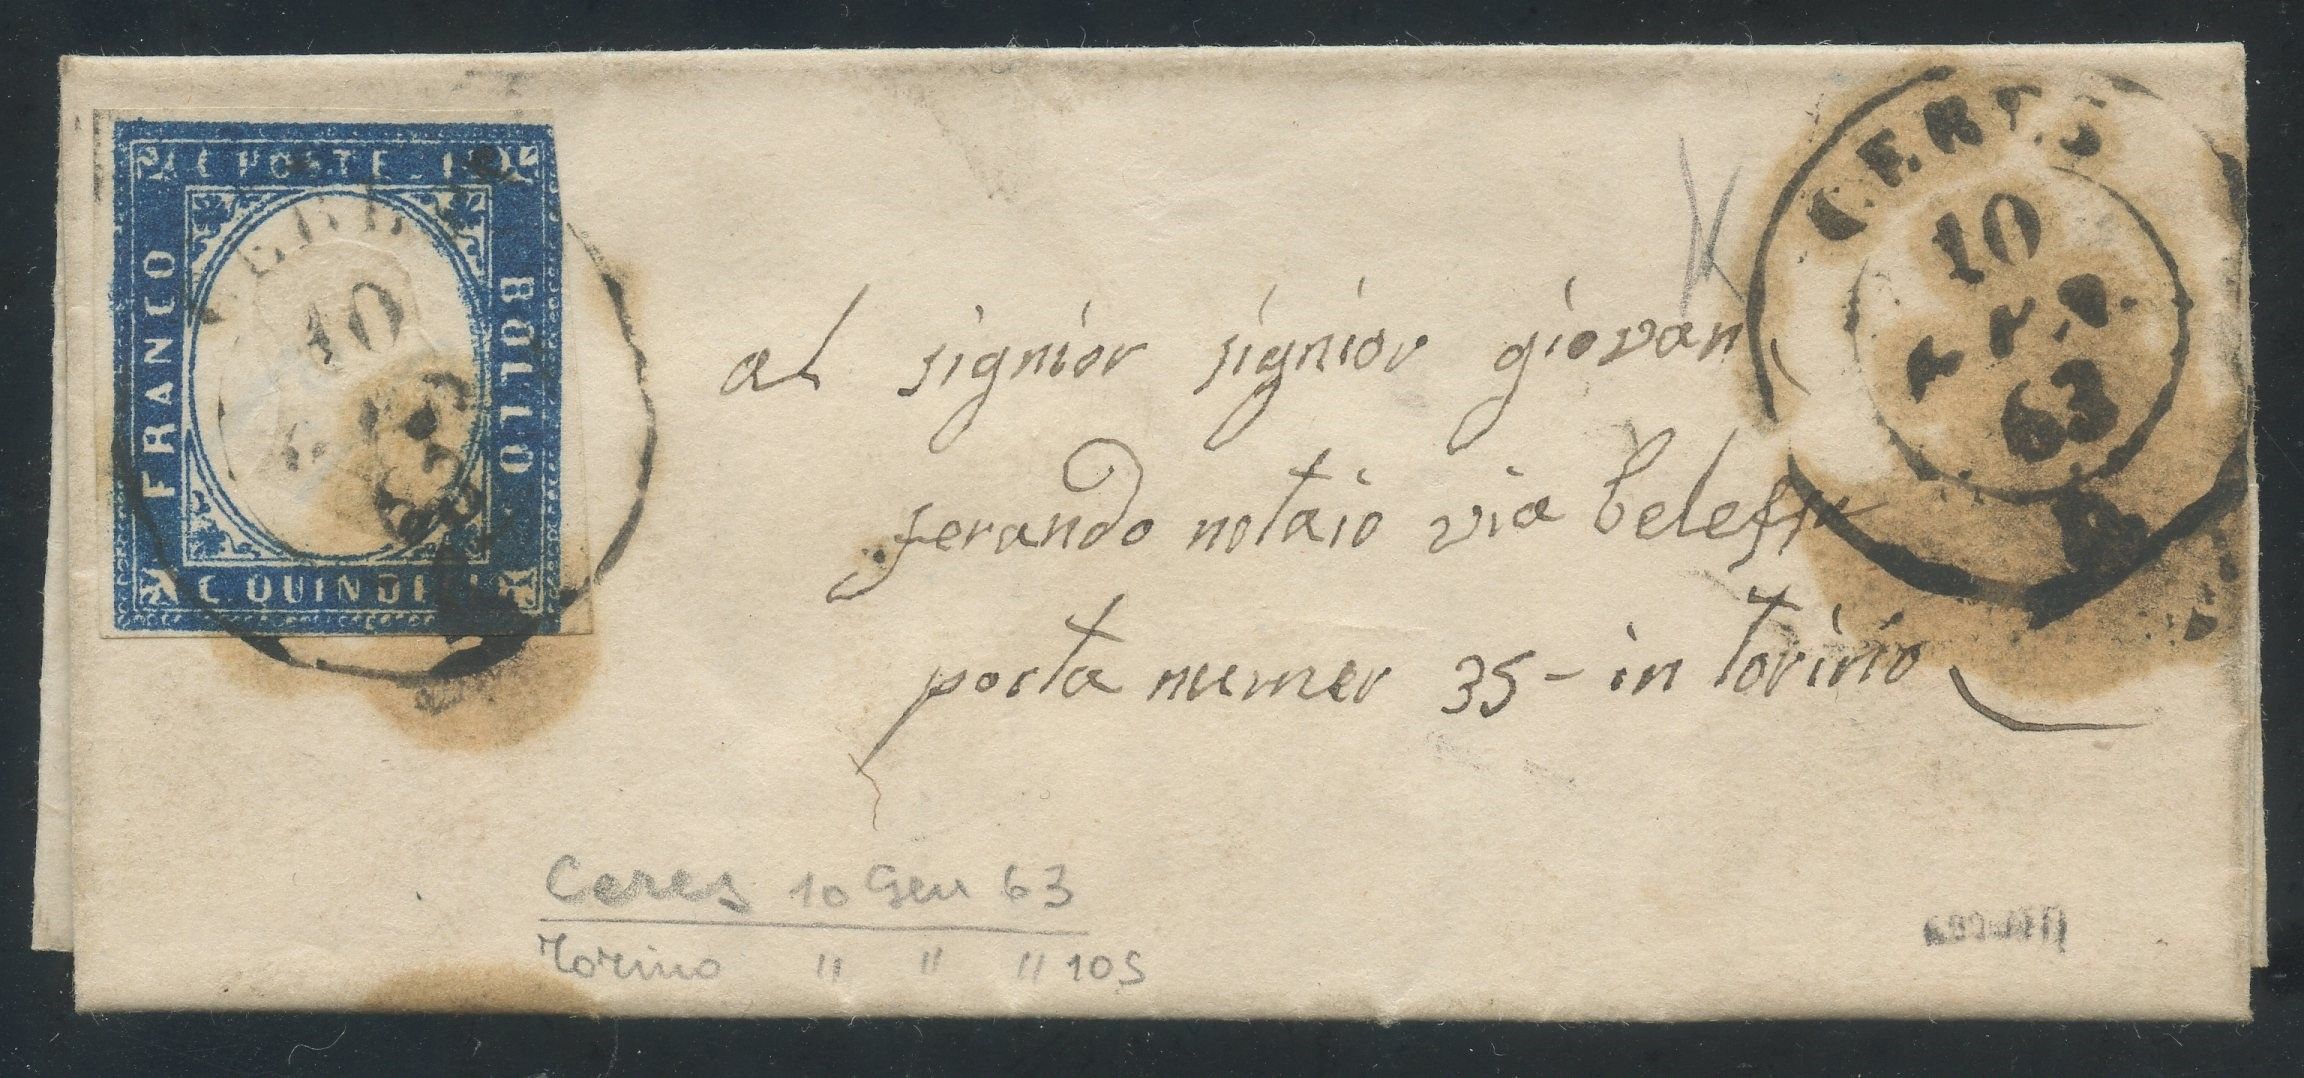 POSTE
FRANCO
BOLLO
C QUINDICI
CERES
10
63
CERES
10
63
al signior signior giovan
ferando notaio via belesin
porta numer 35 - in torino
Ceres 10 Gen 63
Torino " " " 10S